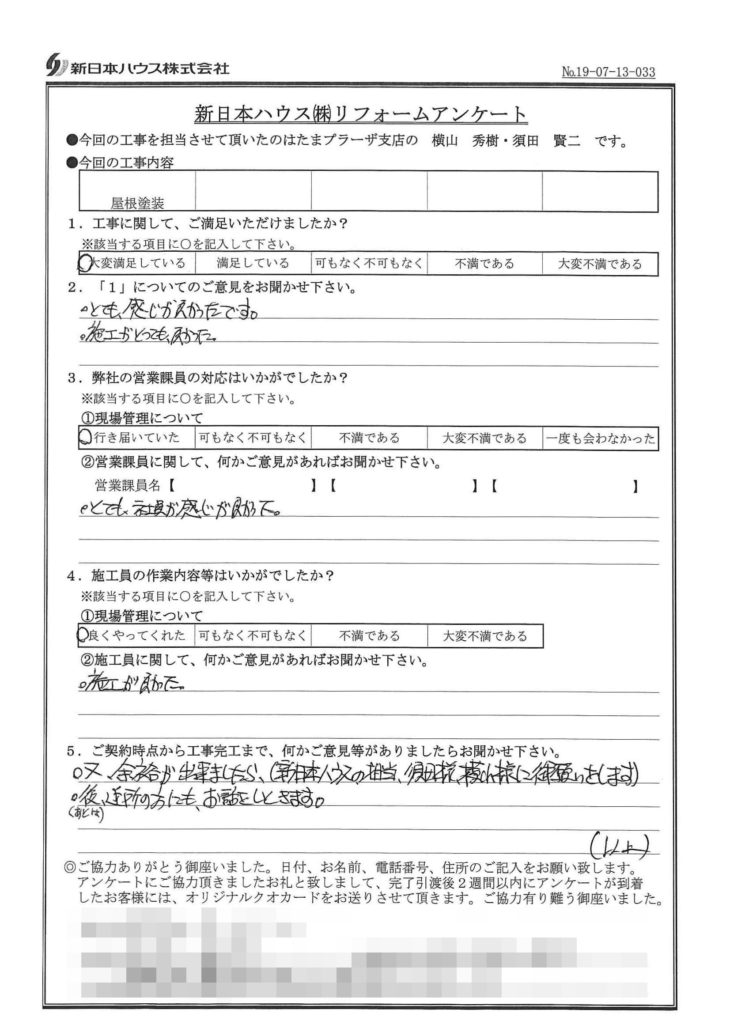 新日本ハウス株式会社
№19-07-13-033
新日本ハウス㈱リフォームアンケート
●今回の工事を担当させて頂いたのはたまプラーザ支店の 横山 秀樹・須田 賢二 です。
●今回の工事内容
屋根塗装
1．工事に関して、ご満足いただけましたか？
※該当する項目に○を記入して下さい。
大変満足している 満足している 可もなく不可もなく 不満である 大変不満である
2．「1」についてのご意見をお聞かせ下さい。
○とても感じが良かったです。
○施工がとっても、良かった。
3．弊社の営業課員の対応はいかがでしたか？
※該当する項目に○を記入して下さい。
①現場管理について
行き届いていた 可もなく不可もなく 不満である 大変不満である 一度も会わなかった
②営業課員に関して、何かご意見があればお聞かせ下さい。
営業課員名【 】【 】【 】
○とても、社員が感じが良かった。
4．施工員の作業内容等はいかがでしたか？
※該当する項目に○を記入して下さい。
①現場管理について
良くやってくれた 可もなく不可もなく 不満である 大変不満である
②施工員に関して、何かご意見があればお聞かせ下さい。
○施工が良かった。
5．ご契約時点から工事完工まで、何かご意見等がありましたらお聞かせ下さい。
○又、余裕が出来ましたら、(新日本ハウスの担当、須田様、横山様に御願いをします)
○後、近所の方にも、お話をしときます。
(あとは)
(以上)
◎ご協力ありがとう御座いました。日付、お名前、電話番号、住所のご記入をお願い致します。
アンケートにご協力頂きましたお礼と致しまして、完了引渡後２週間以内にアンケートが到着
したお客様には、オリジナルクオカードをお送りさせて頂きます。ご協力有り難う御座いました。